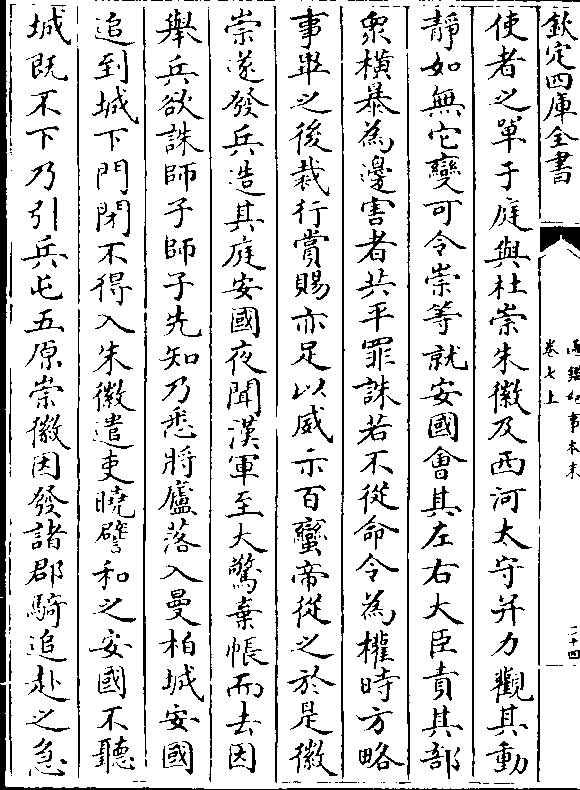 欽定四庫全書
通鑑紀事本末
卷七上
二十四
使者之單于庭與杜崇朱徽及西河太守并力觀其動
靜如無它變可令崇等就安國會其左右大臣責其部
衆橫暴為邊害者共平罪誅若不從命令為權時方略
事畢之後裁行賞賜亦足以威示百蠻帝從之於是徽
崇遂發兵造其庭安國夜聞漢軍至大驚棄帳而去因
舉兵欲誅師子師子先知乃悉將廬落入曼柏城安國
追到城下門閉不得入朱徽遣吏曉譬和之安國不聽
城既不下乃引兵屯五原崇徽因發諸郡騎追赴之急